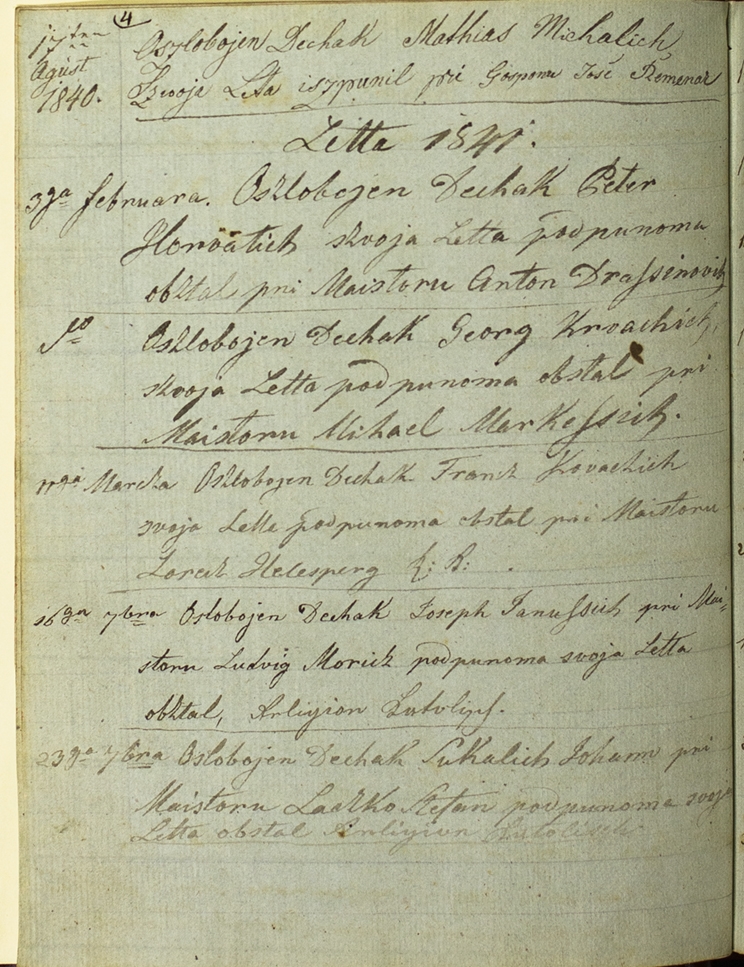 4
17ten
Agust
1840.
Oszlobojen Dechak Mathias Michalich
Szvoja Leta iszpunil pri Gosponu Jose Remenar
Letta 1841.
3ga februara. Oszlobojen Dechak Peter
Horvatich szvoja Letta podpunoma
obstal pri Maistoru Anton Drassinovich
Oszlobojen Dechak Georg Kroachich,
szvoja Letta podpunoma obstal pri
Maistoru Mihael Markessich.
Marcza Oszlobojen Dechak Franz Kovachich
svoja Letta podpunoma obstal pri Maistoru
Helesperg
16ga 7bra Oslobojen Dechak Joseph Janussich pri Mai-
storu Ludvig Moricz podpunoma svoja Letta
obstal,
23ga 7bra Oslobojen Dechak Lukalich Johann pri
Maistoru Laczko Stefan podpunoma svoja
Letta obstal